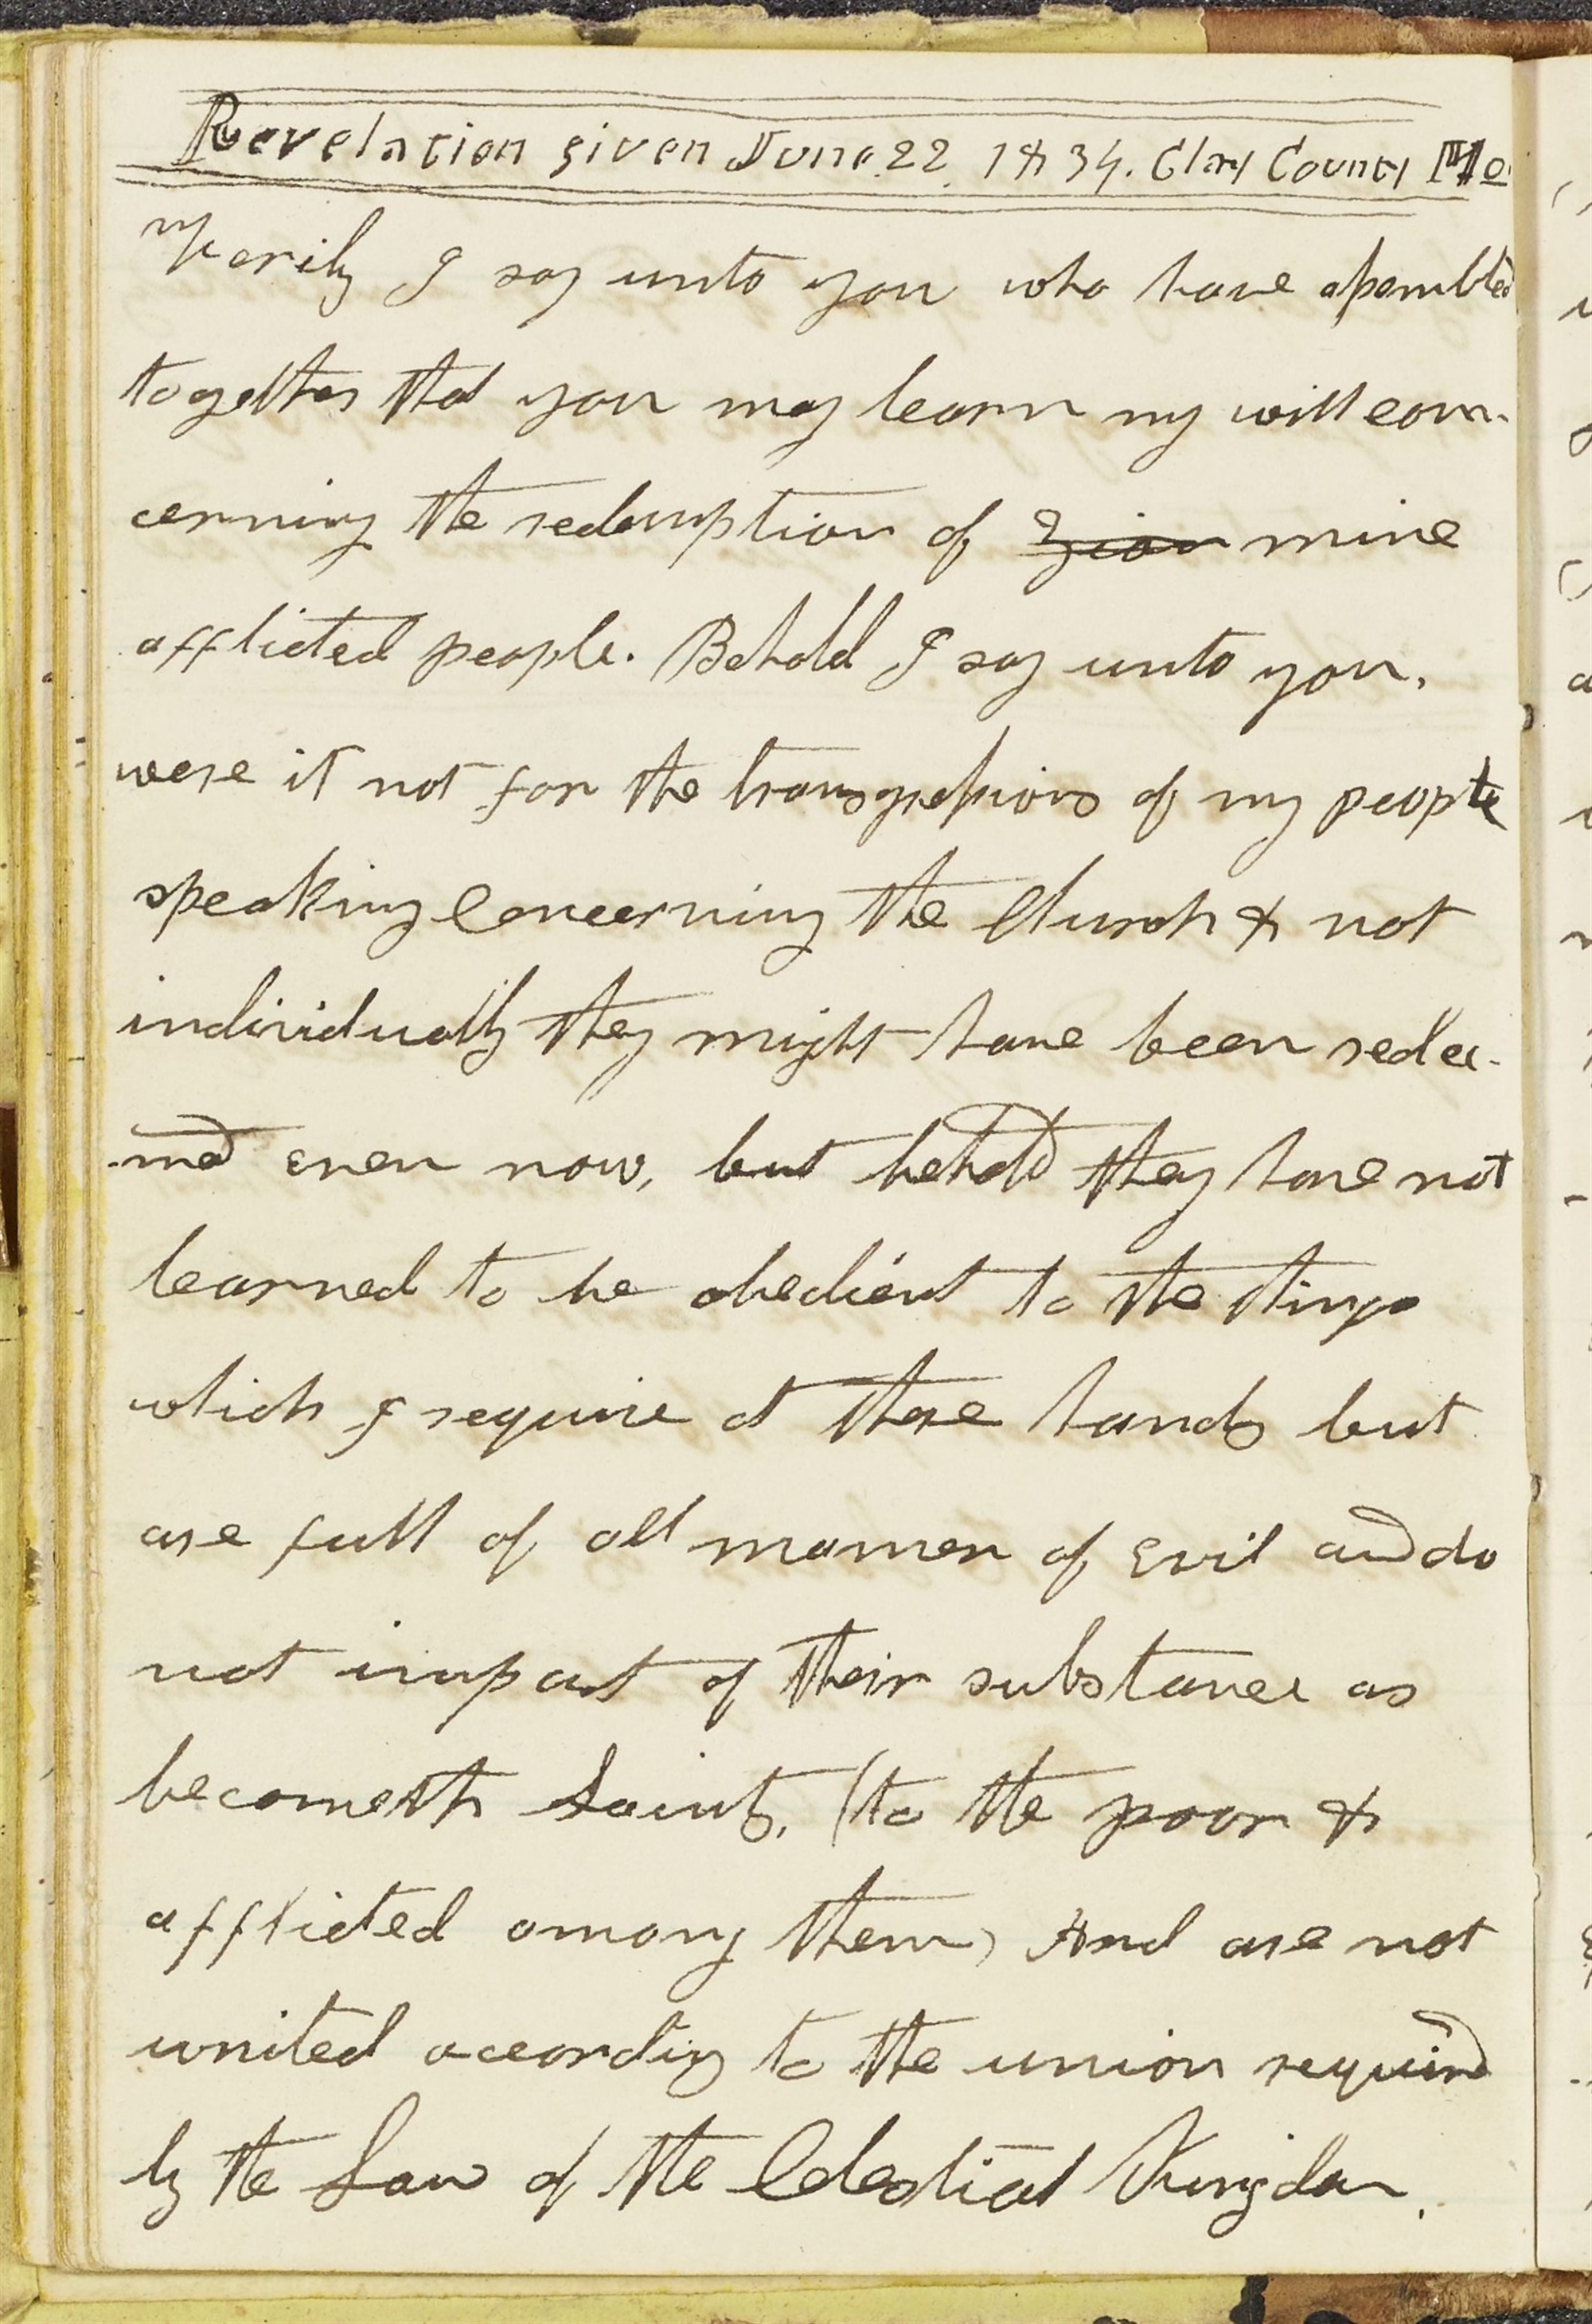 Revelation given June 22. 1834. Clay County Mo
Verily I say unto you who have assembled
together that you may learn my will con-
cerning the redemption of Zion mine
afflicted people. Behold I say unto you,
were it not for the transgressions of my people
speaking Concerning the Church & not
individually they might have been redee-
-med even now, but behold they have not
learned to be obedient to the things
which I require at there hands but
are full of all manner of Evil and do
not impart of their substance as
becometh Saints, (to the poor &
afflicted among them) And are not
united according to the union required
by the Law of the Celestial Kingdom.